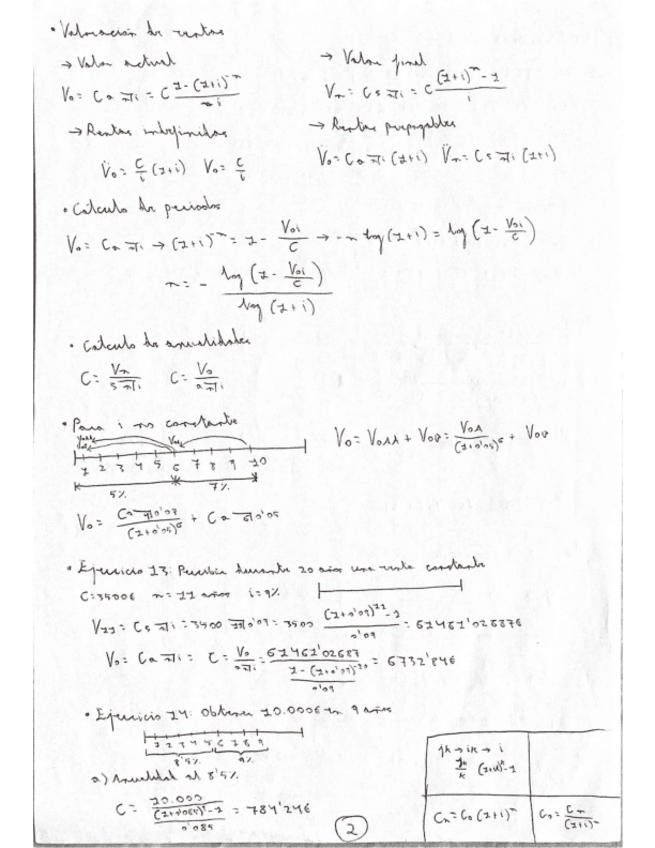 • Valoración de rentas
→ Valor actual
V₀ = C a n̅|i = C (1-(1+i)^-n)/i
→ Valor final
Vn = C s n̅|i = C ((1+i)^n - 1)/i
→ Rentas indefinidas
V̈₀ = C/i (1+i) V₀ = C/i
→ Rentas prepagables
V̈₀ = C a n̅|i (1+i) V̈n = C s n̅|i (1+i)
• Cálculo de periodos
V₀ = C a n̅|i → (1+i)^-n = 1 - V₀i/C → -n log (1+i) = log (1 - V₀i/C)
n = - log (1 - V₀i/C) / log (1+i)
• Cálculo de anualidades
C = Vn / s n̅|i C = V₀ / a n̅|i
• Para i no constante
1 2 3 4 5 6 7 8 9 10
5% 7%
V₀ = V₀AA + V₀B = V₀A/(1+0'05)^6 + V₀B
V₀ = C a 4̅|0'07 / (1+0'05)^6 + C a 6̅|0'05
• Ejercicio 13: Percibir durante 20 años una renta constante
C = 3500€ n = 11 años i = 9%
V₁₁ = C s n̅|i = 3500 s 11̅|0'09 = 3500 ((1+0'09)^11 - 1)/0'09 = 61461'02687€
V₀ = C a n̅|i = C = V₀/a n̅|i = 61461'02687 / ((1-(1+0'09)^-20)/0'09) = 6732'84€
• Ejercicio 14: Obtener 10.000€ en 9 años
1 2 3 4 5 6 7 8 9
8'5% 9%
a) Anualidad al 8'5%
C = 10.000 / (((1+0'085)^9 - 1)/0'085) = 784'24€
jk → ik → i
jk/k (1+ik)^k - 1
Cn = C₀ (1+i)^n
C₀ = Cn/(1+i)^n
2